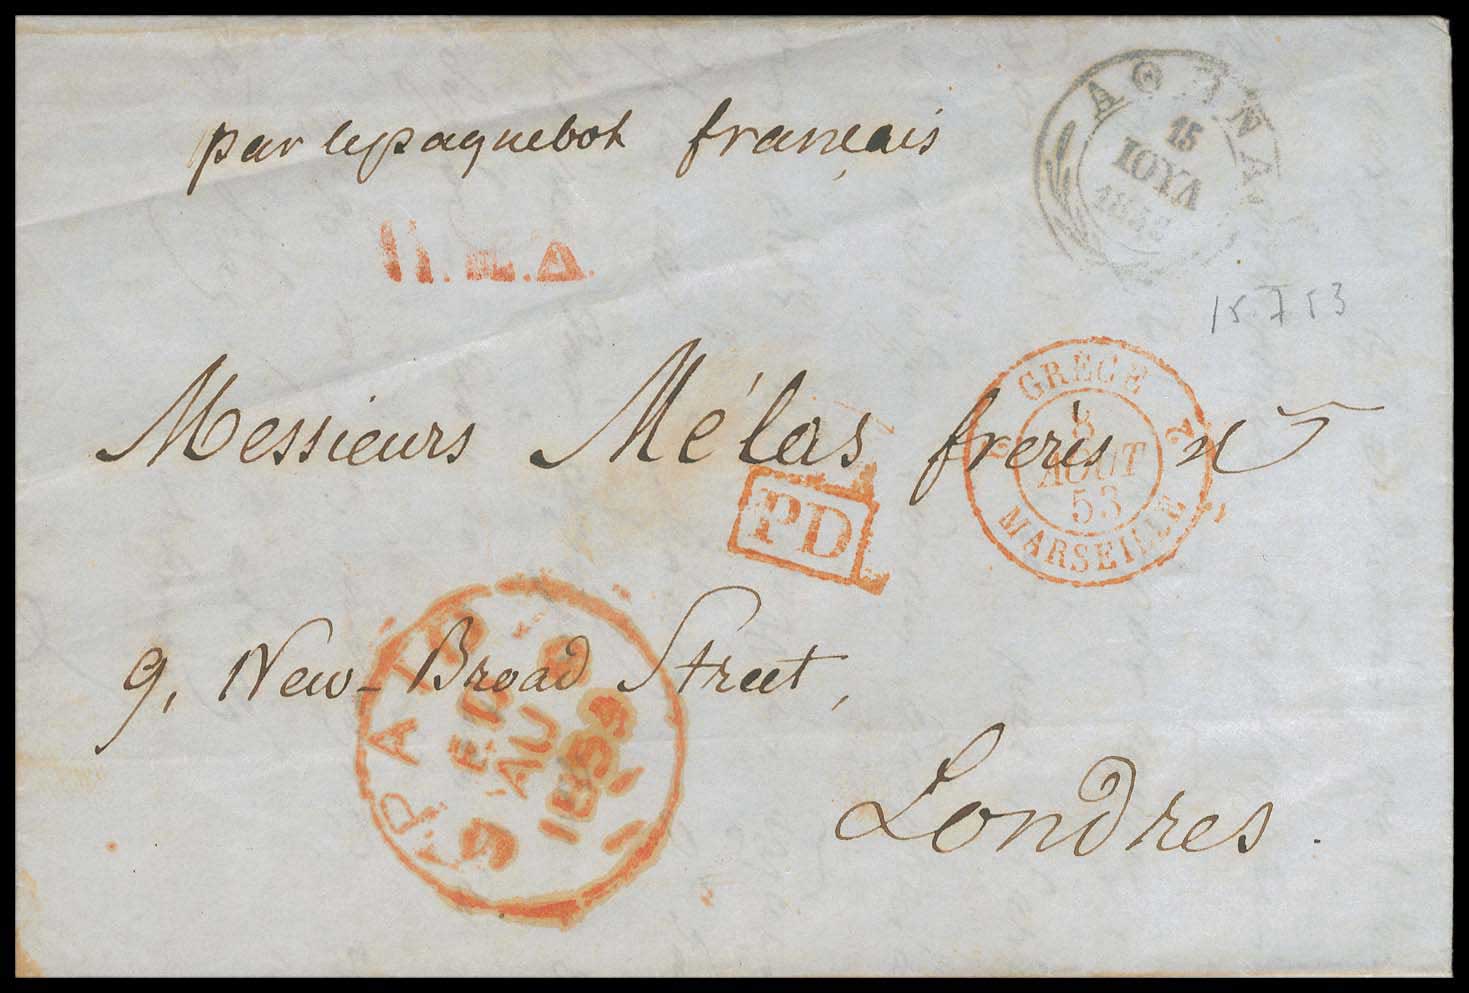 par le paquebot français
ΑΘΗΝΑΙ
15
ΙΟΥΛ
Π.Σ.Δ.
15.7.53
GRÈCE
8
AOUT
53
MARSEILLE
2 2
Messieurs Mélas frères
PD
9, New-Broad Street,
PAID
AU
1853
Londres.